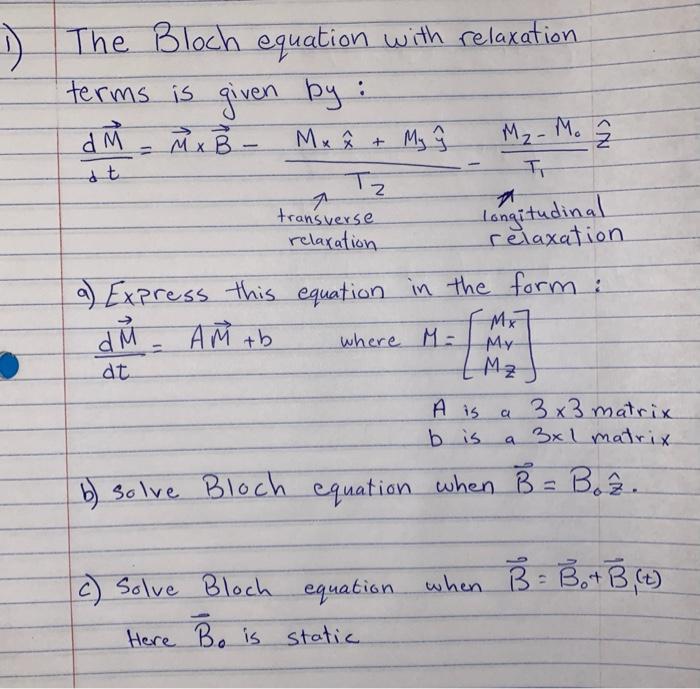 1) The Bloch equation with relaxation
terms is given by :
dM⃗/dt = M⃗ x B⃗ - (Mx x̂ + My ŷ)/T2 - (Mz - Mo)/T1 ẑ
transverse relaxation
longitudinal relaxation
a) Express this equation in the form :
dM⃗/dt = AM⃗ + b where M = [Mx My Mz]
A is a 3x3 matrix
b is a 3x1 matrix
b) Solve Bloch equation when B⃗ = Bo ẑ.
c) Solve Bloch equation when B⃗ = B⃗o + B⃗1(t)
Here B̄o is static